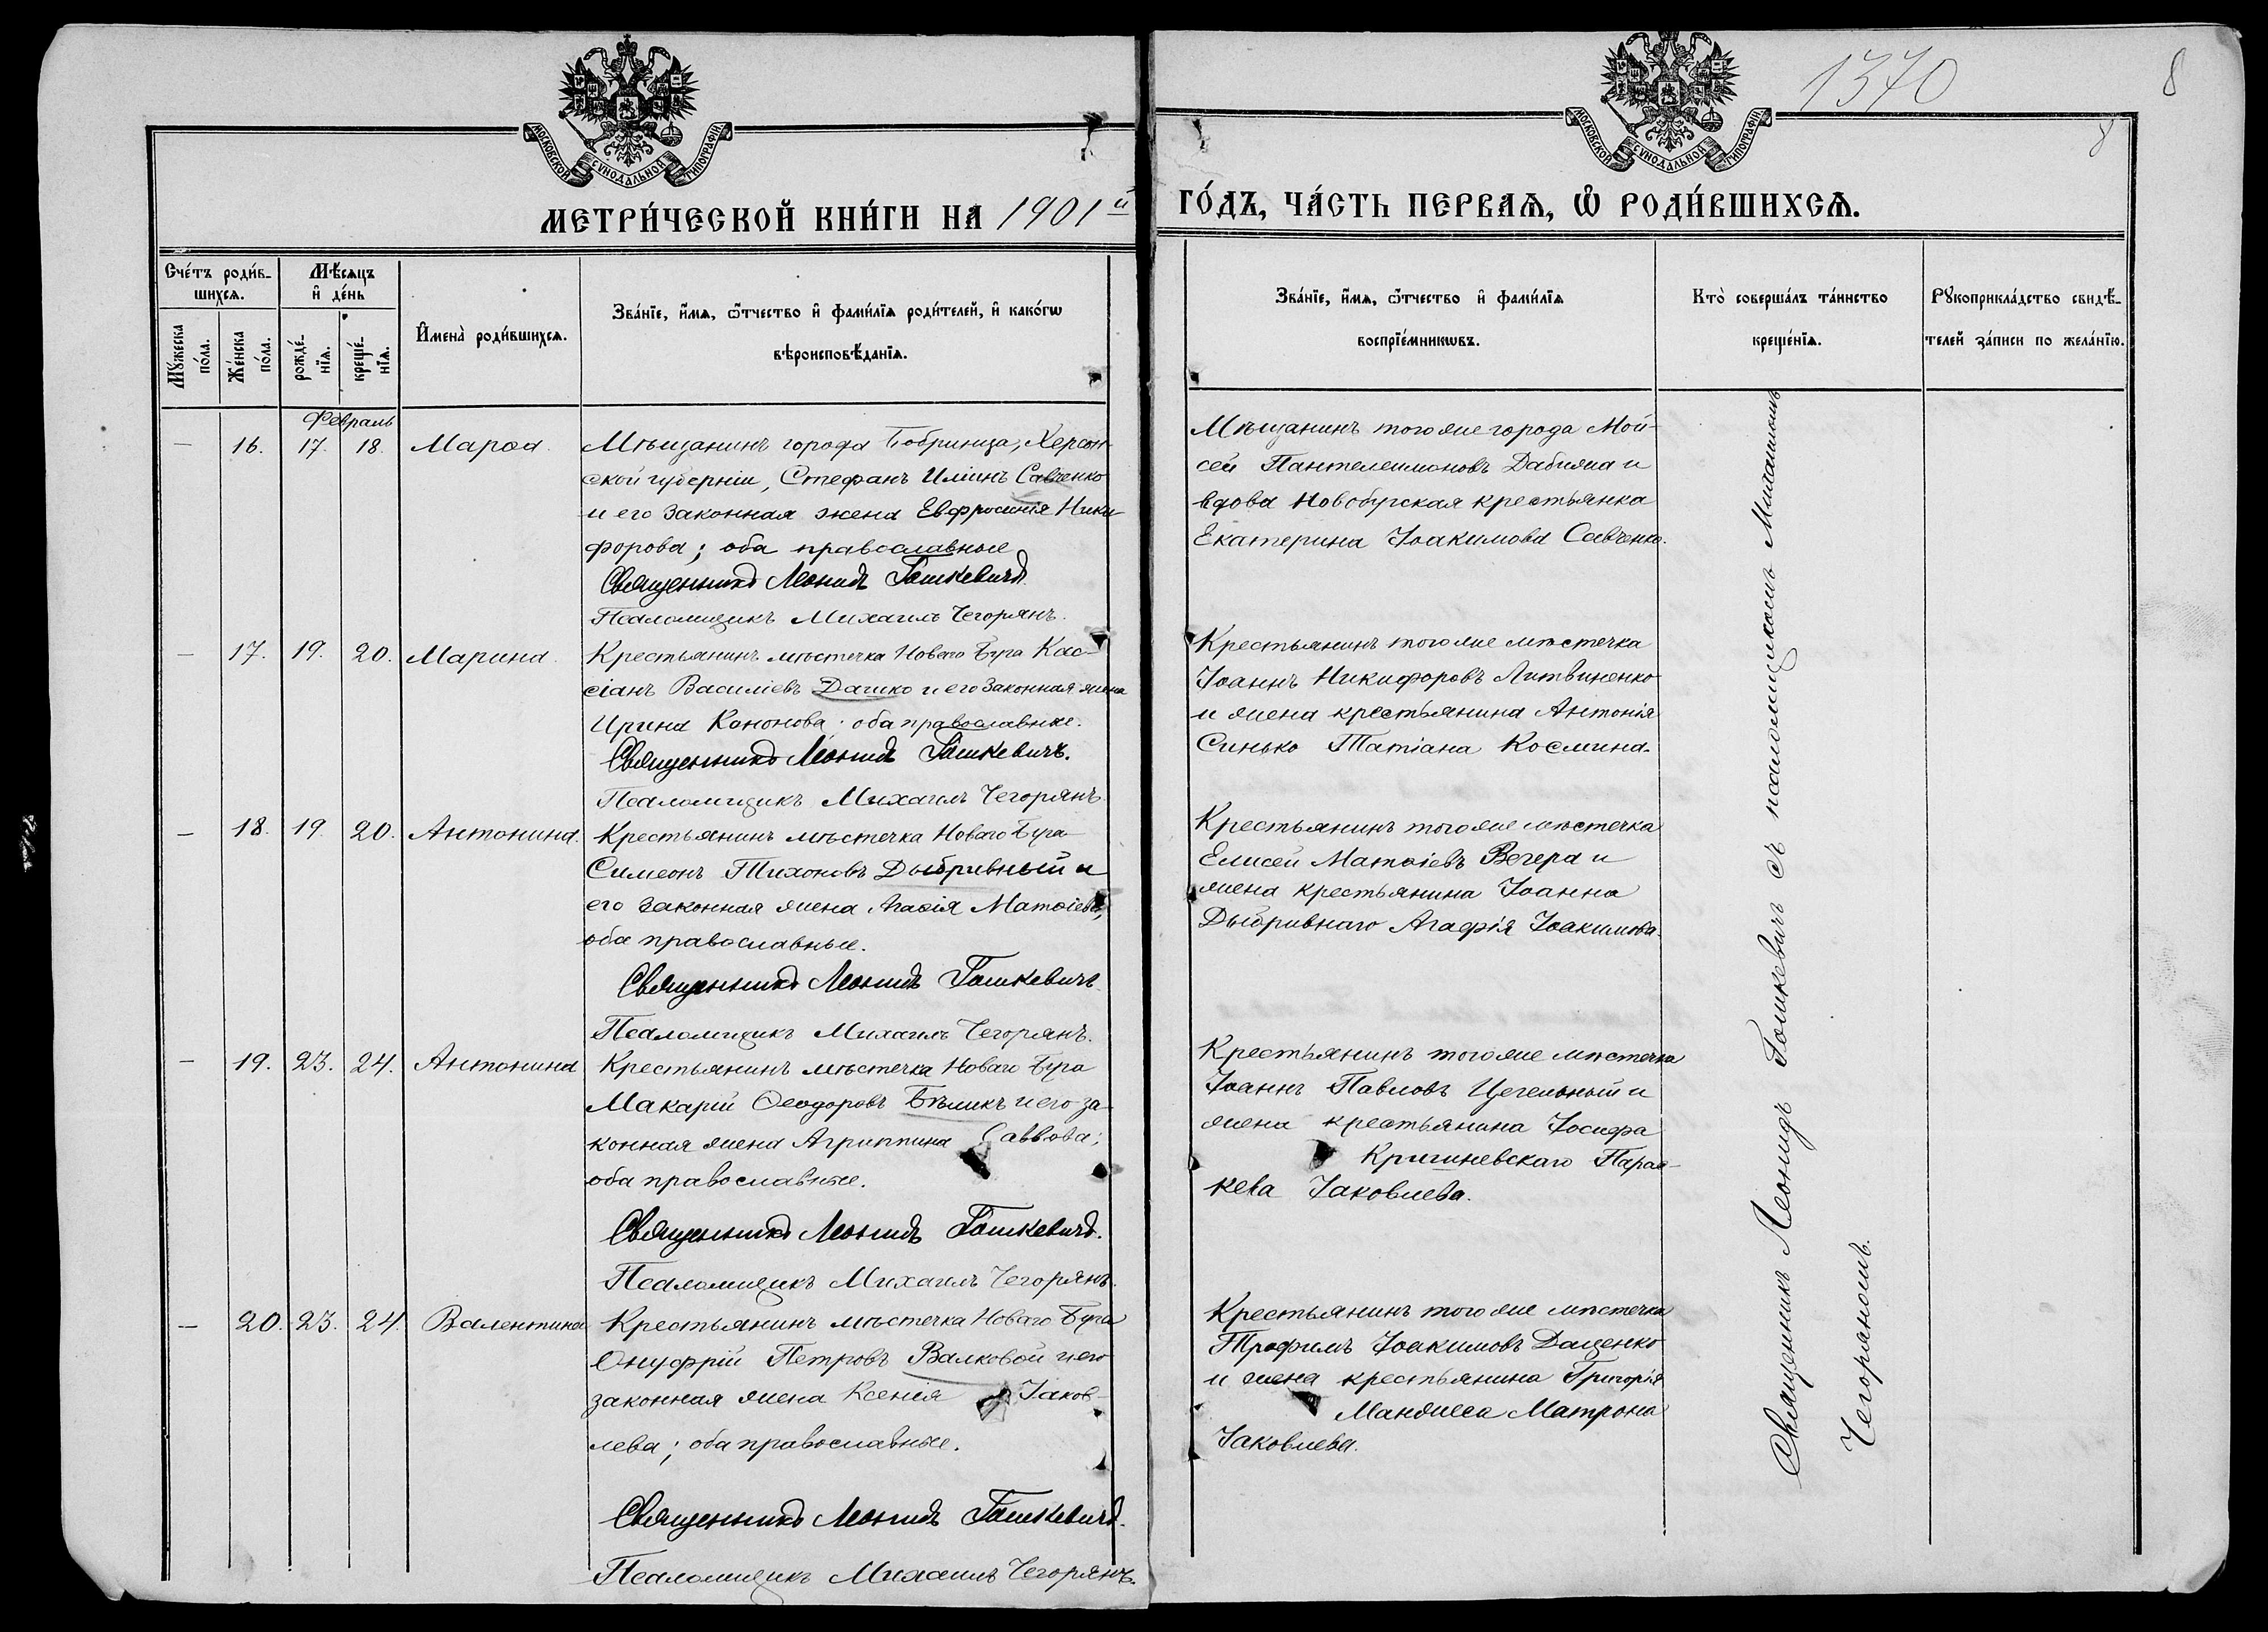 1370
8
8
МОСКОВСКОЙ СѴНОДАЛЬНОЙ ТИПОГРАФІИ
МОСКОВСКОЙ СѴНОДАЛЬНОЙ ТИПОГРАФІИ
МЕТРИ́ЧЕСКОЙ КНИ́ГИ НА 1901 й
ГО́ДЪ, ЧА́СТЬ ПЕРВАѦ, Ѡ҆ РОДИ́ВШИХСѦ.
Сче́тъ роди́в-
шихсѧ.
Мꙋ́жеска по́ла.
Же́нска по́ла.
Мѣ́сѧцъ
и҆ де́нь
рожде́-нїѧ.
креще́-нїѧ.
И҆мена̀ роди́вшихсѧ.
Зва́нїе, и҆́мѧ, ѻ҆́тчество и҆ фами́лїѧ роди́телей, и҆ како́гѡ
вѣроисповѣ́данїѧ.
Зва́нїе, и҆́мѧ, ѻ҆́тчество и҆ фами́лїѧ
воспрїе́мникѡвъ.
Кто̀ соверша́лъ та́инство
креще́нїѧ.
Рꙋкоприкла́дство свидѣ́-
телей за́писи по жела́нїю.
Февраль
— 16. 17. 18. Марѳа.
Мѣщанинъ города Бобринца, Херсон-
ской губерніи, Стефанъ Иліинъ Савченко
и его законная жена Евфросинія Ники-
форова; оба православные
Священникъ Леонидъ Гашкевичъ.
Псаломщикъ Михаилъ Чегорянъ.
Мѣщанинъ того же города Мои-
сей Пантелеимоновъ Дабижа и
вдова Новобугская крестьянка
Екатерина Іоакимова Савченко.
— 17. 19. 20. Марина.
Крестьянинъ мѣстечка Новаго Буга Кас-
сіанъ Василіевъ Дашко и его законная жена
Ирина Кононова; оба православные.
Священникъ Леонидъ Гашкевичъ.
Псаломщикъ Михаилъ Чегорянъ.
Крестьянинъ того же мѣстечка
Іоаннъ Никифоровъ Литвиненко
и жена крестьянина Антонія
Синько Татіана Космина.
— 18. 19. 20. Антонина.
Крестьянинъ мѣстечка Новаго Буга
Симеонъ Тихоновъ Дыбривный и
его законная жена Агаѳія Матѳіева,
оба православные.
Священникъ Леонидъ Гашкевичъ
Псаломщикъ Михаилъ Чегорянъ.
Крестьянинъ того же мѣстечка
Елисей Матѳіевъ Вечера и
жена крестьянина Іоанна
Дыбривнаго Агафія Іоакимова.
— 19. 23. 24. Антонина
Крестьянинъ мѣстечка Новаго Буга
Макарій Ѳеодоровъ Бѣликъ и его за-
конная жена Агриппина Саввова;
оба православные.
Священникъ Леонидъ Гашкевичъ.
Псаломщикъ Михаилъ Чегорянъ.
Крестьянинъ того же мѣстечка
Іоаннъ Павловъ Цегельный и
жена крестьянина Іосифа
Кришневскаго Парас-
кева Іаковлева.
— 20. 23. 24. Валентина
Крестьянинъ мѣстечка Новаго Буга
Онуфрій Петровъ Валковой и его
законная жена Ксенія Іаков-
лева; оба православные.
Священникъ Леонидъ Гашкевичъ.
Псаломщикъ Михаилъ Чегорянъ.
Крестьянинъ того же мѣстечка
Трофимъ Іоакимовъ Даценко
и жена крестьянина Григорія
Матрона
Іаковлева.
Священникъ Леонидъ Гашкевичъ съ псаломщикомъ Михаиломъ
Чегоряномъ.